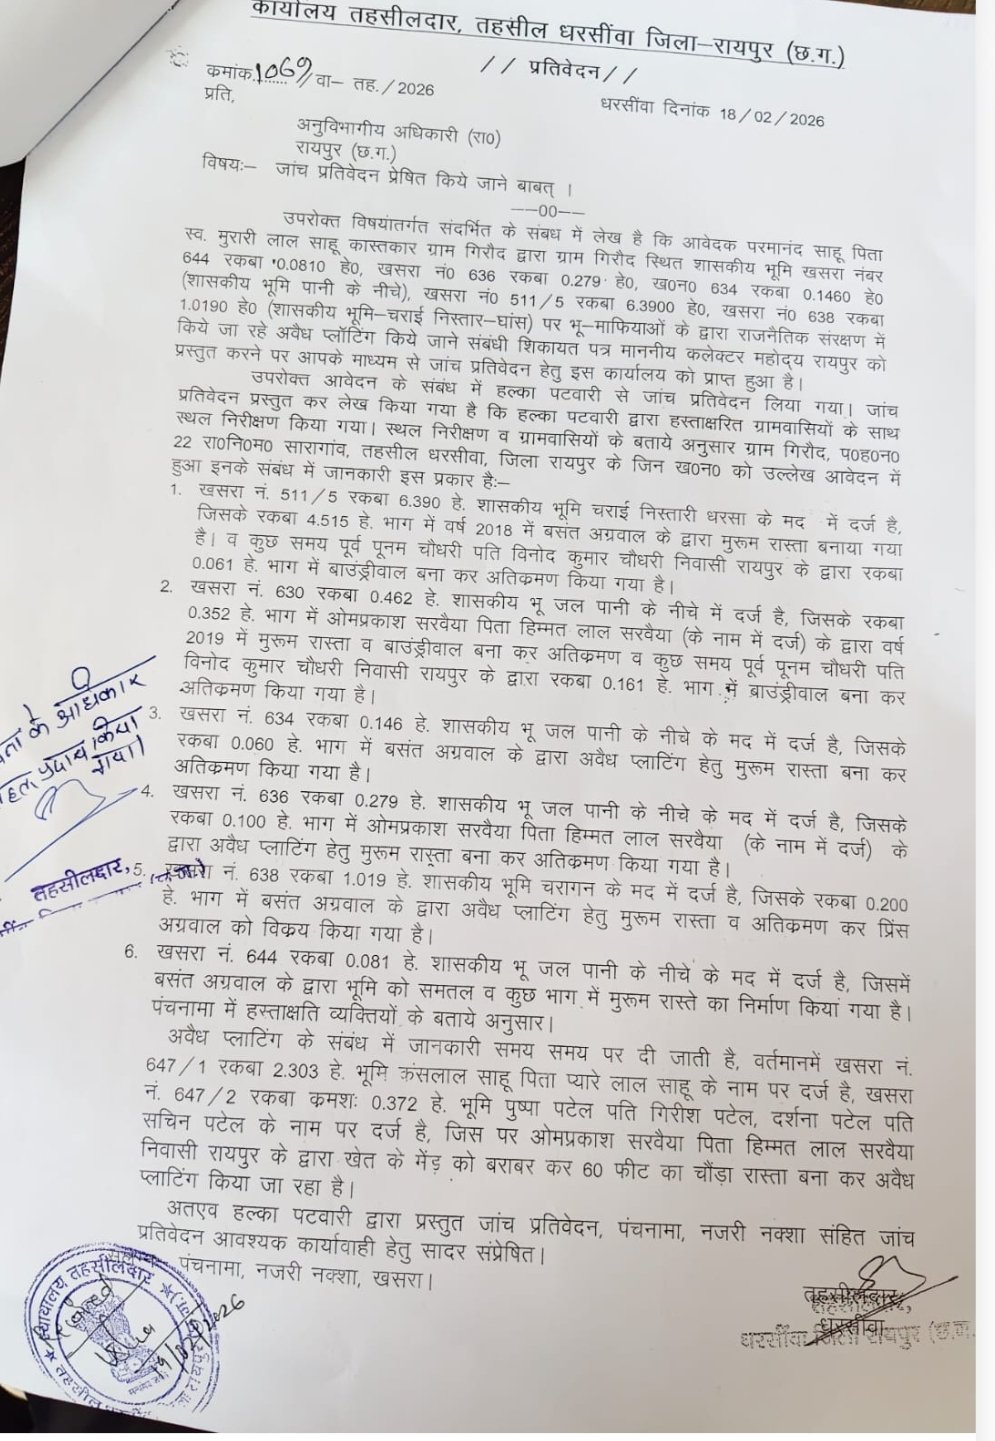 कार्यालय तहसीलदार, तहसील धरसींवा जिला–रायपुर (छ.ग.)
// प्रतिवेदन//
कमांक.1069/वा– तह./2026
धरसींवा दिनांक 18/02/2026
प्रति,
अनुविभागीय अधिकारी (रा0)
रायपुर (छ.ग.)
विषयः– जांच प्रतिवेदन प्रेषित किये जाने बाबत् ।
––00––
उपरोक्त विषयांतर्गत संदर्भित के संबध में लेख है कि आवेदक परमानंद साहू पिता
स्व. मुरारी लाल साहू कास्तकार ग्राम गिरौद द्वारा ग्राम गिरौद स्थित शासकीय भूमि खसरा नंबर
644 रकबा 0.0810 हे0, खसरा नं0 636 रकबा 0.279 हे0, ख0न0 634 रकबा 0.1460 हे0
(शासकीय भूमि पानी के नीचे), खसरा नं0 511/5 रकबा 6.3900 हे0, खसरा नं0 638 रकबा
1.0190 हे0 (शासकीय भूमि–चराई निस्तार–घांस) पर भू–माफियाओं के द्वारा राजनैतिक संरक्षण में
किये जा रहे अवैध प्लॉटिंग किये जाने संबंधी शिकायत पत्र माननीय कलेक्टर महोदय रायपुर को
प्रस्तुत करने पर आपके माध्यम से जांच प्रतिवेदन हेतु इस कार्यालय को प्राप्त हुआ है।
उपरोक्त आवेदन के संबंध में हल्का पटवारी से जांच प्रतिवेदन लिया गया। जांच
प्रतिवेदन प्रस्तुत कर लेख किया गया है कि हल्का पटवारी द्वारा हस्ताक्षरित ग्रामवासियों के साथ
स्थल निरीक्षण किया गया। स्थल निरीक्षण व ग्रामवासियों के बताये अनुसार ग्राम गिरौद, प0ह0न0
22 रा0नि0म0 सारागांव, तहसील धरसीवा, जिला रायपुर के जिन ख0न0 को उल्लेख आवेदन में
हुआ इनके संबंध में जानकारी इस प्रकार हैः–
1. खसरा नं. 511/5 रकबा 6.390 हे. शासकीय भूमि चराई निस्तारी धरसा के मद में दर्ज है,
जिसके रकबा 4.515 हे. भाग में वर्ष 2018 में बसंत अग्रवाल के द्वारा मुरूम रास्ता बनाया गया
है। व कुछ समय पूर्व पूनम चौधरी पति विनोद कुमार चौधरी निवासी रायपुर के द्वारा रकबा
0.061 हे. भाग में बाउंड्रीवाल बना कर अतिकमण किया गया है।
2. खसरा नं. 630 रकबा 0.462 हे. शासकीय भू जल पानी के नीचे में दर्ज है, जिसके रकबा
0.352 हे. भाग में ओमप्रकाश सरवैया पिता हिम्मत लाल सरवैया (के नाम में दर्ज) के द्वारा वर्ष
2019 में मुरूम रास्ता व बाउंड्रीवाल बना कर अतिकमण व कुछ समय पूर्व पूनम चौधरी पति
विनोद कुमार चौधरी निवासी रायपुर के द्वारा रकबा 0.161 हे. भाग में बाउंड्रीवाल बना कर
अतिकमण किया गया है।
3. खसरा नं. 634 रकबा 0.146 हे. शासकीय भू जल पानी के नीचे के मद में दर्ज है, जिसके
रकबा 0.060 हे. भाग में बसंत अग्रवाल के द्वारा अवैध प्लाटिंग हेतु मुरूम रास्ता बना कर
अतिकमण किया गया है।
4. खसरा नं. 636 रकबा 0.279 हे. शासकीय भू जल पानी के नीचे के मद में दर्ज है, जिसके
रकबा 0.100 हे. भाग में ओमप्रकाश सरवैया पिता हिम्मत लाल सरवैया (के नाम में दर्ज) के
द्वारा अवैध प्लाटिंग हेतु मुरूम रास्ता बना कर अतिकमण किया गया है।
5. खसरा नं. 638 रकबा 1.019 हे. शासकीय भूमि चरागन के मद में दर्ज है, जिसके रकबा 0.200
हे. भाग में बसंत अग्रवाल के द्वारा अवैध प्लाटिंग हेतु मुरूम रास्ता व अतिकमण कर प्रिंस
अग्रवाल को विक्रय किया गया है।
6. खसरा नं. 644 रकबा 0.081 हे. शासकीय भू जल पानी के नीचे के मद में दर्ज है, जिसमें
बसंत अग्रवाल के द्वारा भूमि को समतल व कुछ भाग में मुरूम रास्ते का निर्माण किया गया है।
पंचनामा में हस्ताक्षति व्यक्तियों के बताये अनुसार।
अवैध प्लाटिंग के संबंध में जानकारी समय समय पर दी जाती है, वर्तमानमें खसरा नं.
647/1 रकबा 2.303 हे. भूमि कंसलाल साहू पिता प्यारे लाल साहू के नाम पर दर्ज है, खसरा
नं. 647/2 रकबा कमशः 0.372 हे. भूमि पुष्पा पटेल पति गिरीश पटेल, दर्शना पटेल पति
सचिन पटेल के नाम पर दर्ज है, जिस पर ओमप्रकाश सरवैया पिता हिम्मत लाल सरवैया
निवासी रायपुर के द्वारा खेत के मेंड़ को बराबर कर 60 फीट का चौंड़ा रास्ता बना कर अवैध
प्लाटिंग किया जा रहा है।
अतएव हल्का पटवारी द्वारा प्रस्तुत जांच प्रतिवेदन, पंचनामा, नजरी नक्शा संहित जांच
प्रतिवेदन आवश्यक कार्यावाही हेतु सादर संप्रेषित।
पंचनामा, नजरी नक्शा, खसरा।
के अधिकार
प्रदाय किया
गया।
तहसीलदार,
न्यायालय तहसीलदार
19/02/2026
तहसीलदार,
धरसींवा
धरसींवा जिला रायपुर (छ.ग.